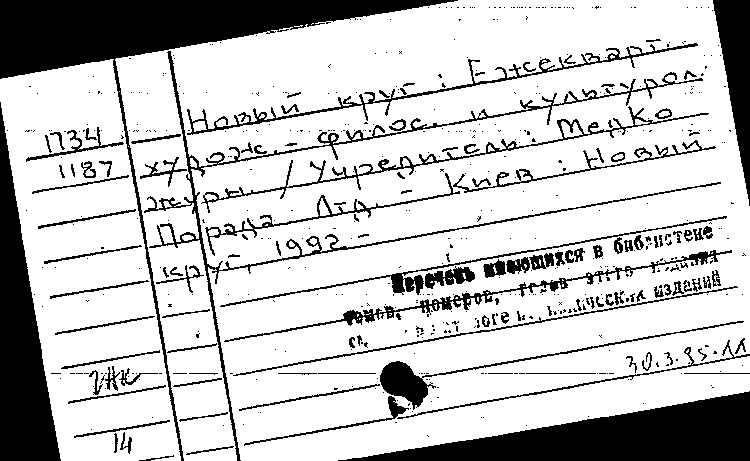 1734
1187
Новый круг : Ежекварт.
худож. - филос. и культурол.
журн. / Учредитель: Медко
Парада Лтд. - Киев : Новый
круг, 1992 -
Перечень имеющихся в библиотеке
томов, номеров, годов этого издания
см. издани​й
2жк
14
30.3.95.11